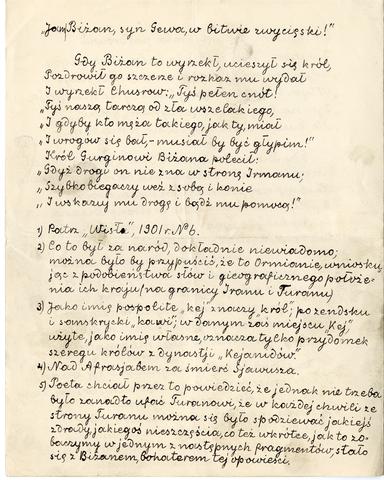 „Jam Biżan, syn Gewa, w bitwie zwycięski!"
Gdy Biżan to wyrzekł, ucieszył się król,
Pozdrowił go szczerze i rozkaz mu wydał
I wyrzekł Chusrow: „Tyś pełen cnót!
„Tyś naszą tarczą od zła wszelakiego,
„I gdyby kto męża takiego, jak ty, miał
„I wrogów się bał,- musiał by być głypim!"
Król Gurginowi Biżana polecił:
„Gdyż drogi on nie zna w stronę Irmanu;
„Szybkobiegaczy weź z sobą i konie
„I wskazuj mu drogę i bądź mu pomocą!"
1) Patrz „Wisła", 1901 r. № 6.
2) Co to był za naród, dokładnie niewiadomo;
można było by przypuścić, że to Ormianie, wniosku-
jąc z podobieństwa słów i gieograficznego położe-
nia ich kraju (na granicy Iranu i Turanu)
3) Jako imię pospolite „kej" znaczy król; po zendsku
i sanskrycku „kawi"; w danym zaś miejscu „Kej"
użyte, jako imię własne, oznacza tylko przydomek
szeregu królów z dynastji „Kejanidów".
4) Nad Afrasjabem za śmierć Sjawusza.
5) Poeta chciał przez to powiedzieć, że jednak nie trzeba
było zanadto ufać Turanowi, że w każdej chwili ze
strony Turanu można się było spodziewać jakiejś
zdrady, jakiegoś nieszczęścia, co też wkrótce, jak to zo-
baczymy w jednym z następnych fragmentów, stało
się z Biżanem, bohaterem tej opowieści.